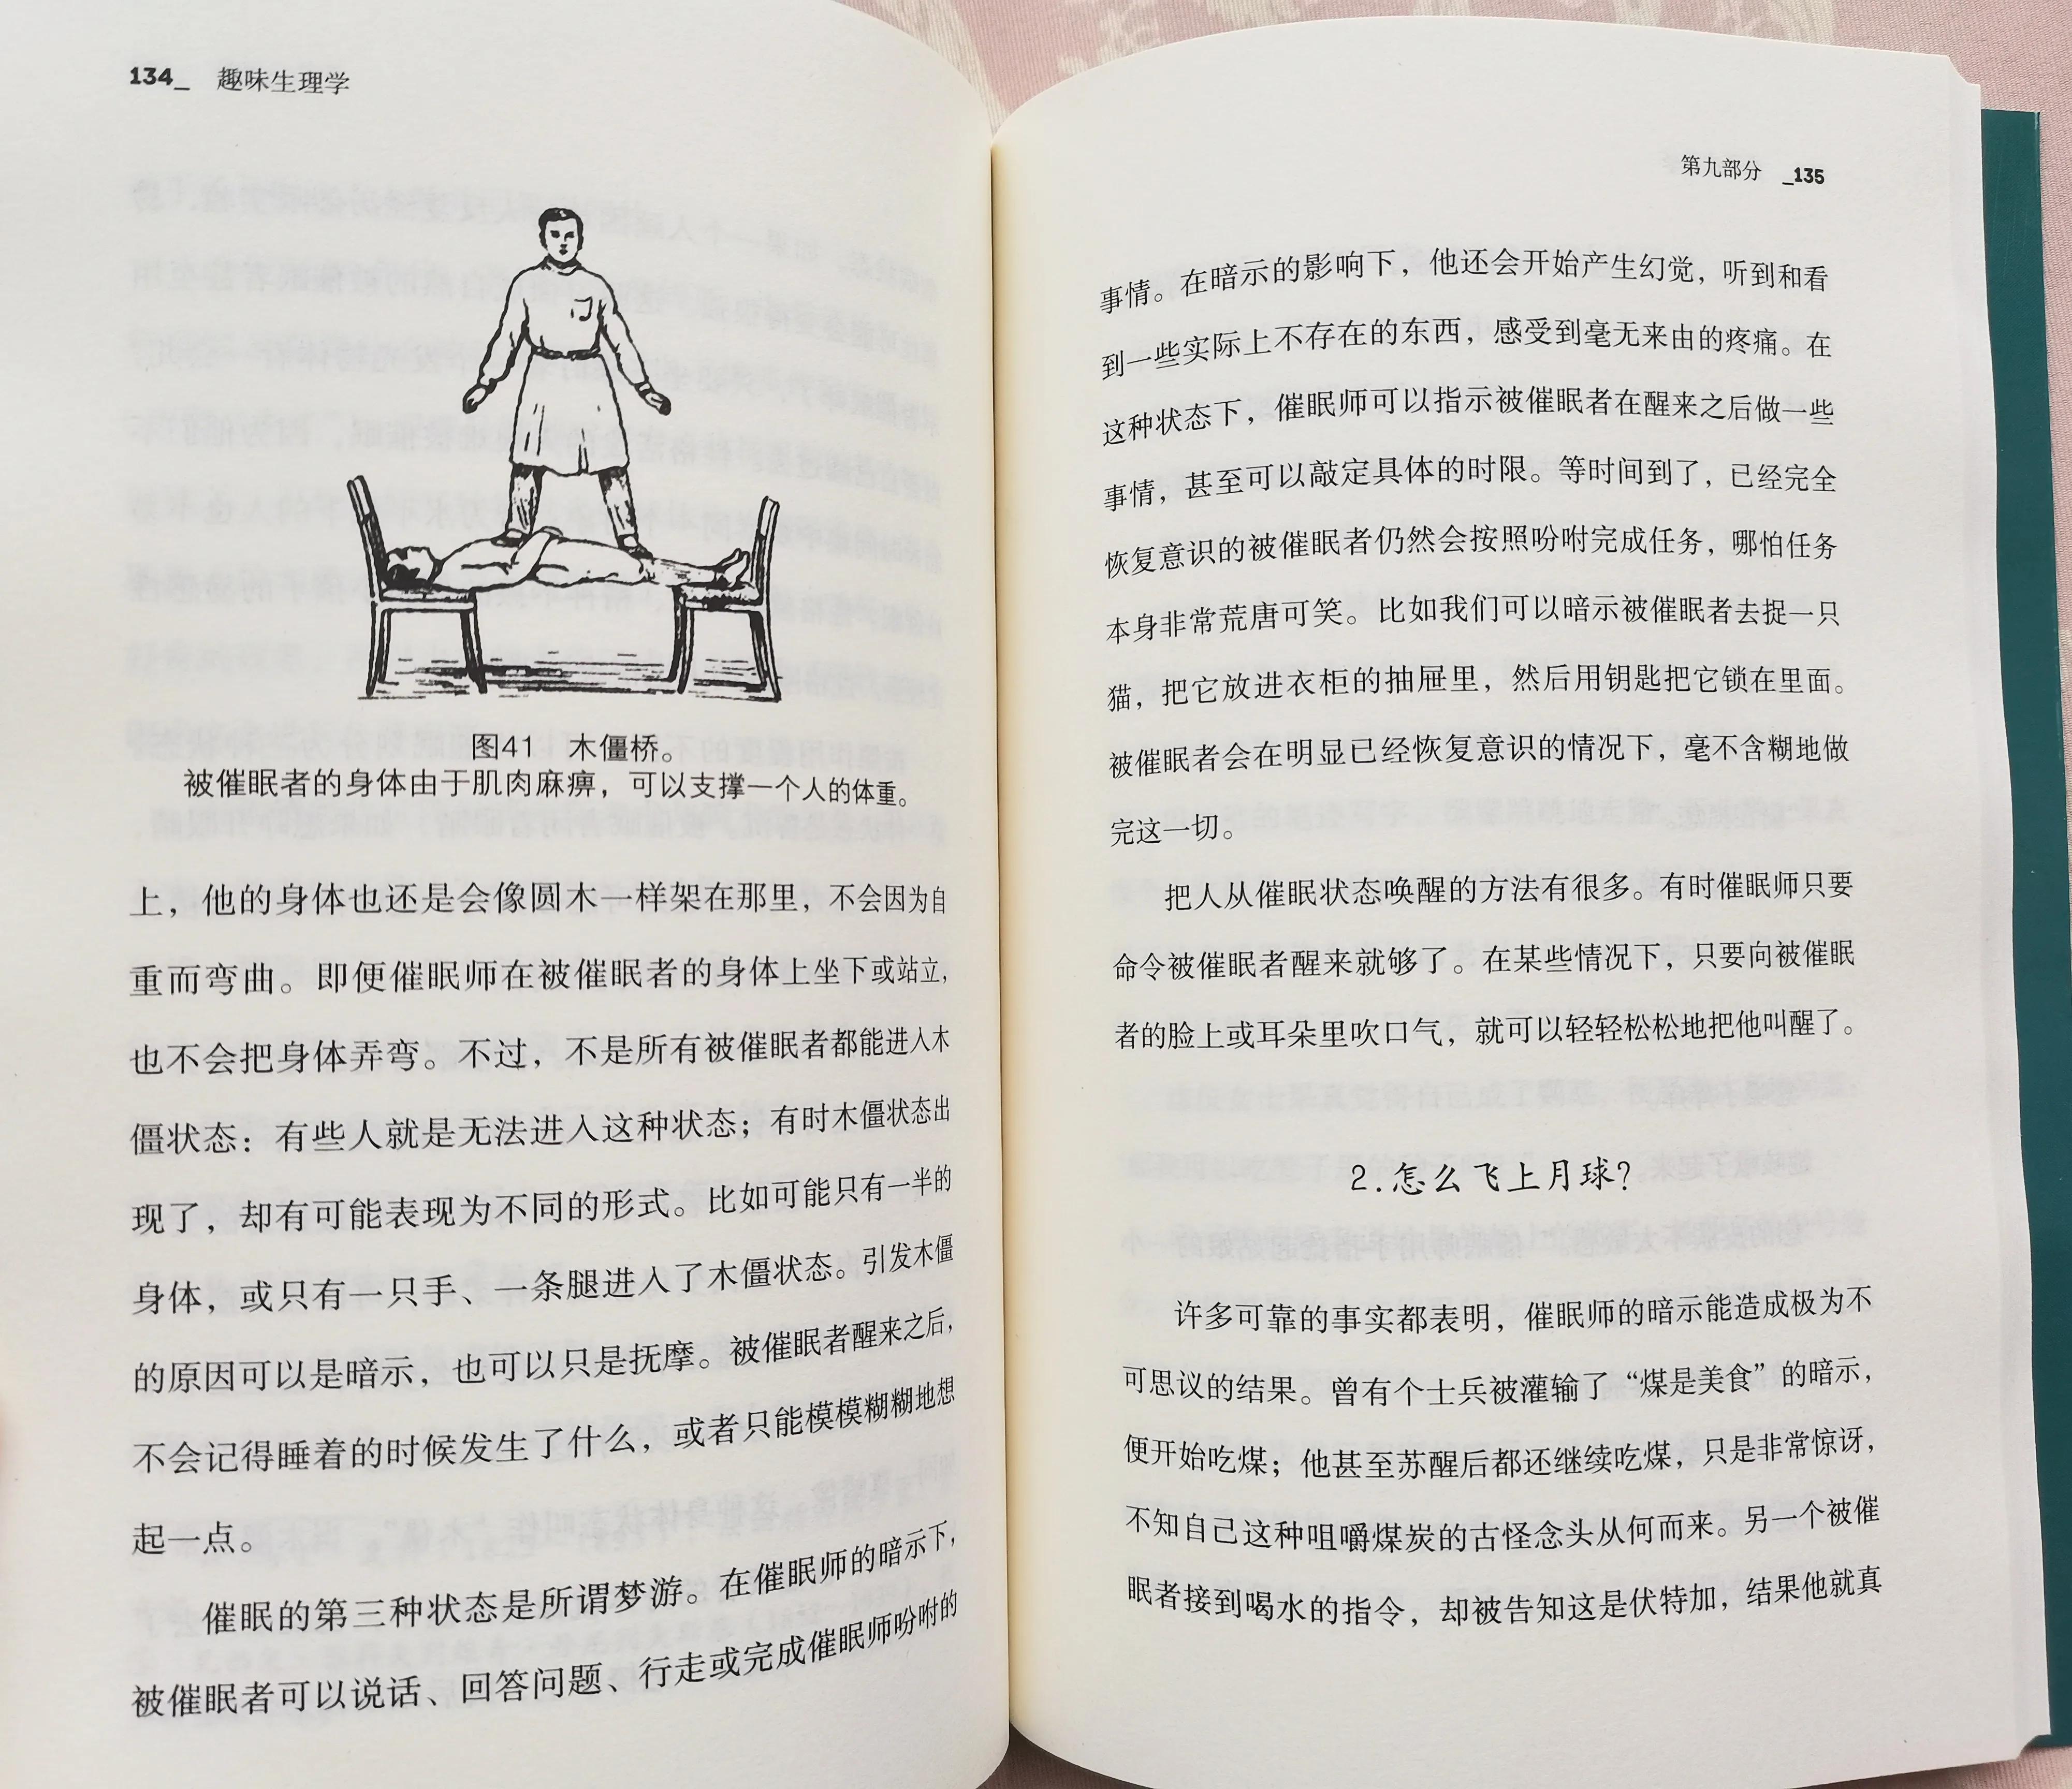 134_ 趣味生理学
图41 木僵桥。
被催眠者的身体由于肌肉麻痹，可以支撑一个人的体重。
上，他的身体也还是会像圆木一样架在那里，不会因为自
重而弯曲。即便催眠师在被催眠者的身体上坐下或站立，
也不会把身体弄弯。不过，不是所有被催眠者都能进入木
僵状态：有些人就是无法进入这种状态；有时木僵状态出
现了，却有可能表现为不同的形式。比如可能只有一半的
身体，或只有一只手、一条腿进入了木僵状态。引发木僵
的原因可以是暗示，也可以只是抚摩。被催眠者醒来之后，
不会记得睡着的时候发生了什么，或者只能模模糊糊地想
起一点。
催眠的第三种状态是所谓梦游。在催眠师的暗示下，
被催眠者可以说话、回答问题、行走或完成催眠师吩咐的
第九部分 _135
事情。在暗示的影响下，他还会开始产生幻觉，听到和看
到一些实际上不存在的东西，感受到毫无来由的疼痛。在
这种状态下，催眠师可以指示被催眠者在醒来之后做一些
事情，甚至可以敲定具体的时限。等时间到了，已经完全
恢复意识的被催眠者仍然会按照吩咐完成任务，哪怕任务
本身非常荒唐可笑。比如我们可以暗示被催眠者去捉一只
猫，把它放进衣柜的抽屉里，然后用钥匙把它锁在里面。
被催眠者会在明显已经恢复意识的情况下，毫不含糊地做
完这一切。
把人从催眠状态唤醒的方法有很多。有时催眠师只要
命令被催眠者醒来就够了。在某些情况下，只要向被催眠
者的脸上或耳朵里吹口气，就可以轻轻松松地把他叫醒了。
2.怎么飞上月球？
许多可靠的事实都表明，催眠师的暗示能造成极为不
可思议的结果。曾有个士兵被灌输了“煤是美食”的暗示，
便开始吃煤；他甚至苏醒后都还继续吃煤，只是非常惊讶，
不知自己这种咀嚼煤炭的古怪念头从何而来。另一个被催
眠者接到喝水的指令，却被告知这是伏特加，结果他就真